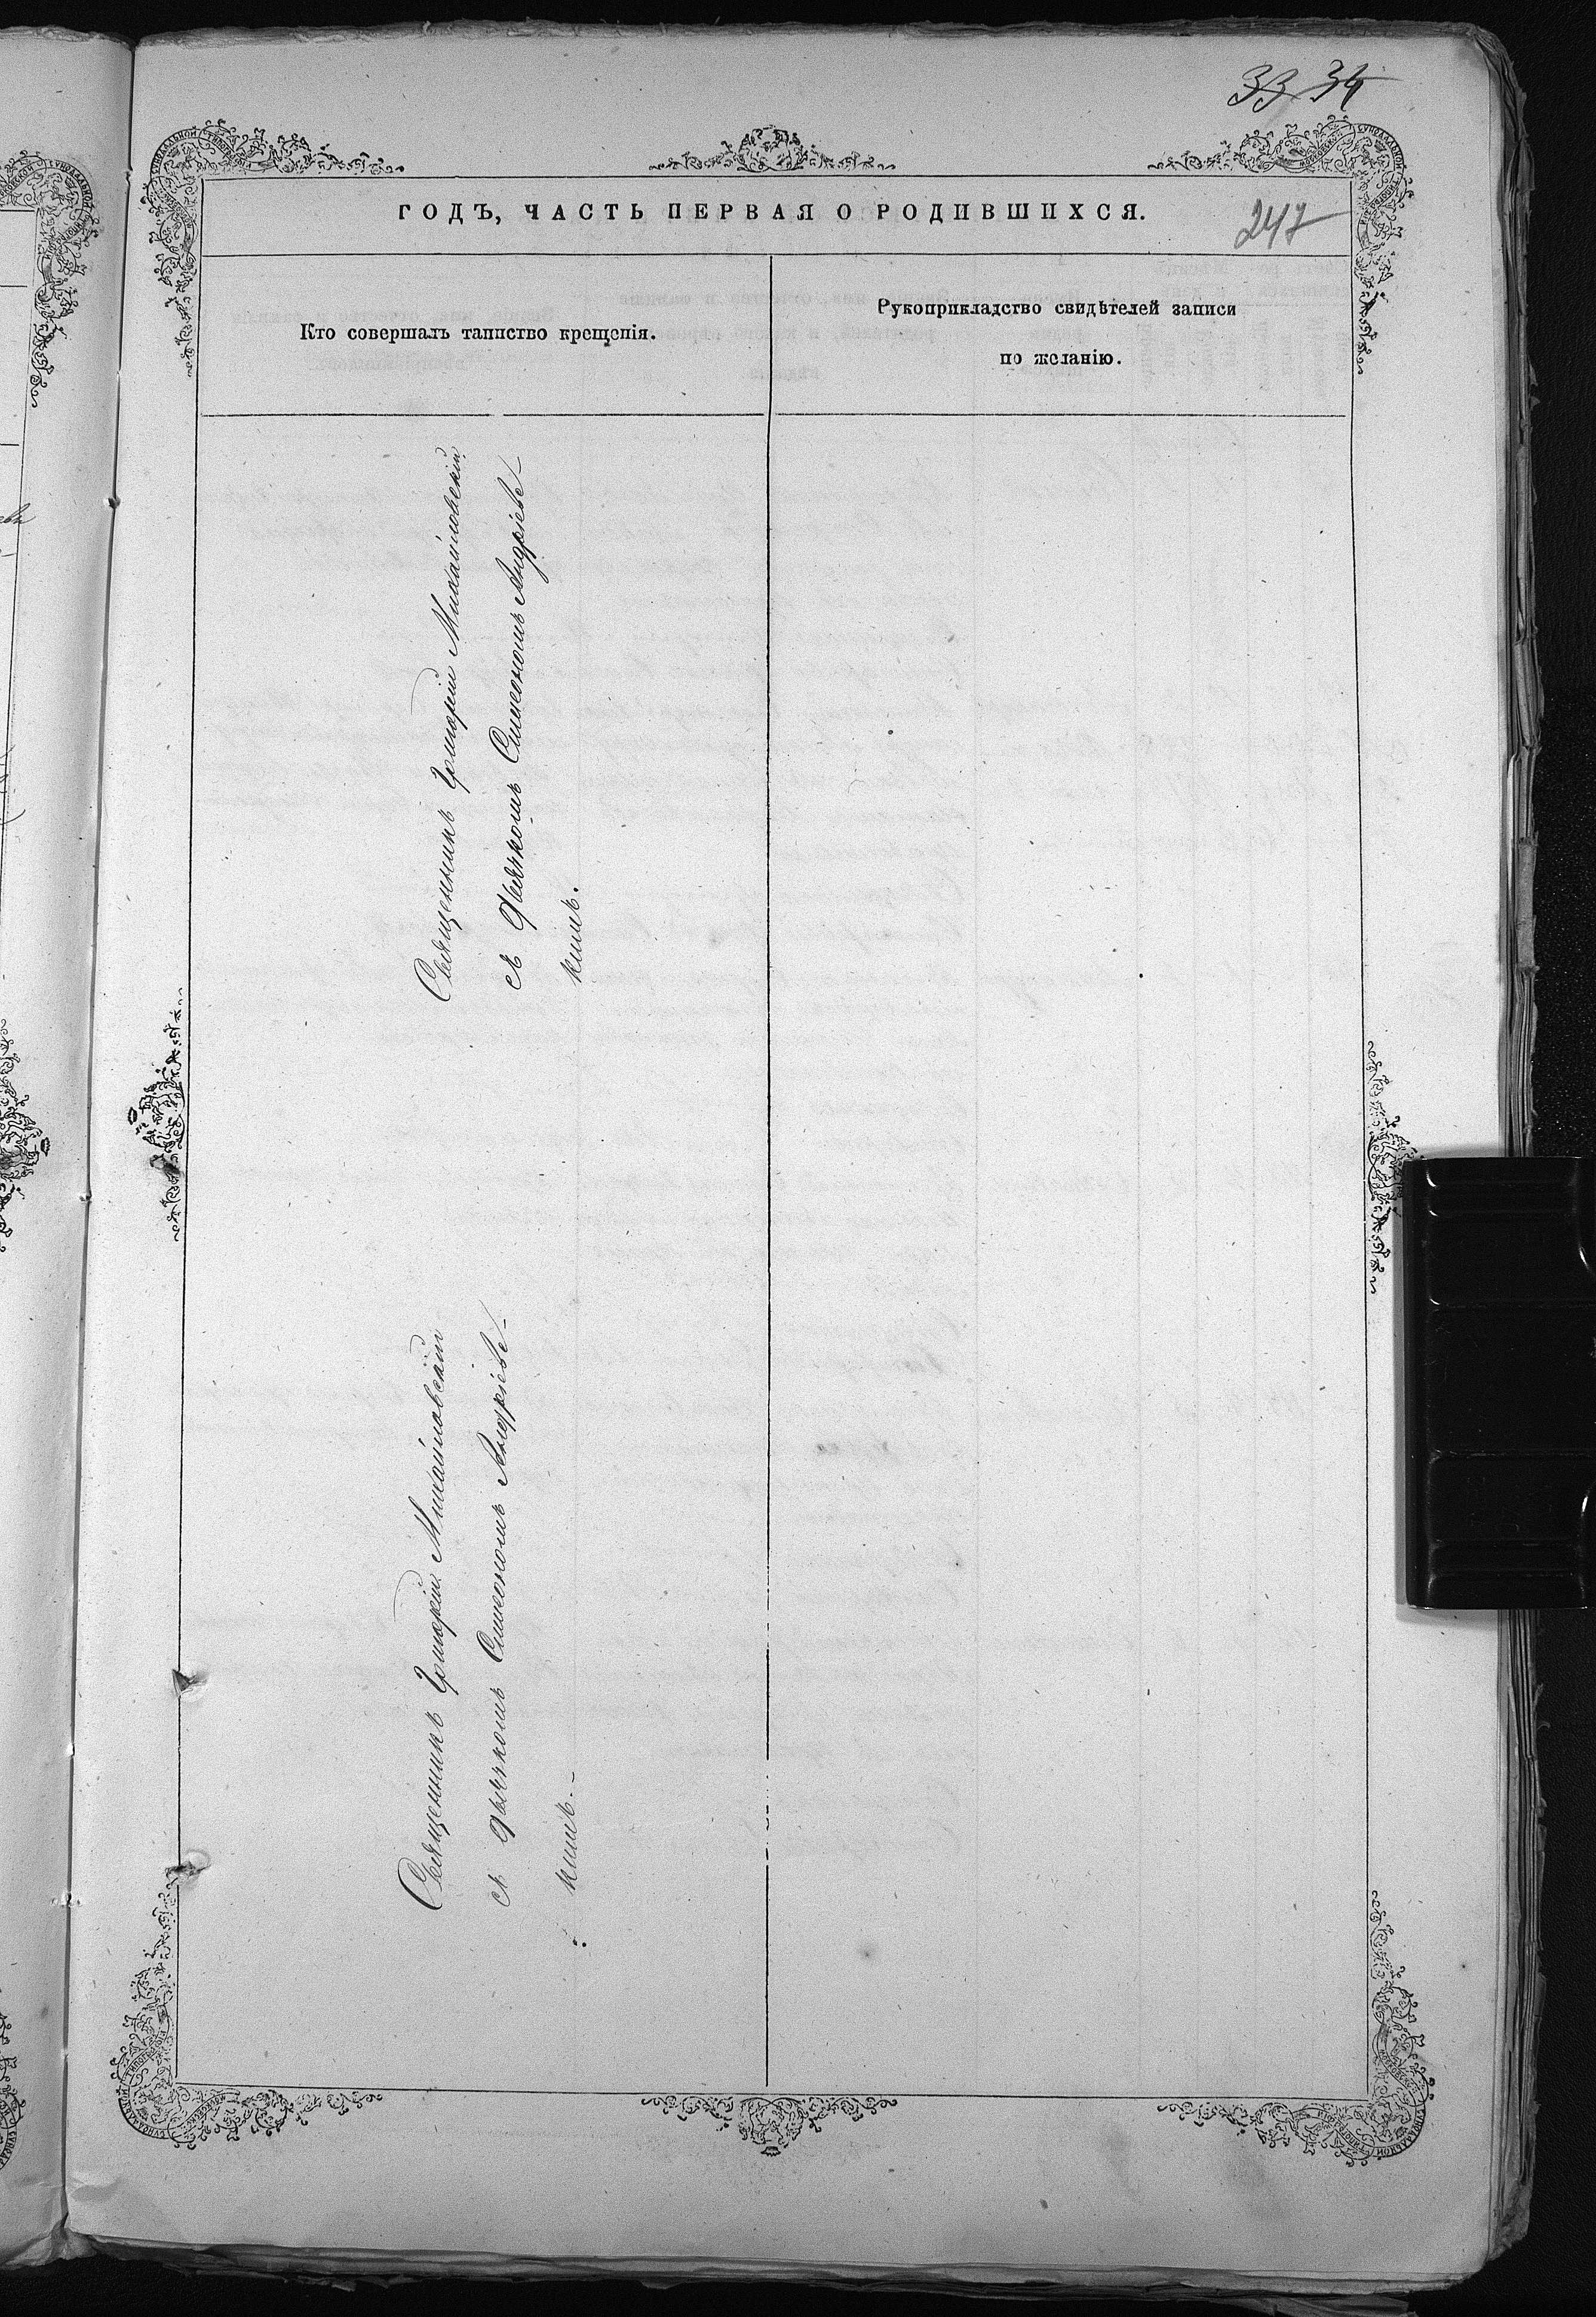 33 34
ГОДЪ, ЧАСТЬ ПЕРВАЯ О РОДИВШИХСЯ.
247
Кто совершалъ таинство крещенія.
Рукоприкладство свидѣтелей записи
по желанію.
Священникъ Григорій Михайловскій
съ дьячкомъ Симеономъ Андріев-
кимъ.
Священникъ Григорій Михайловскій
съ дьячкомъ Симеономъ Андріев-
кимъ.-